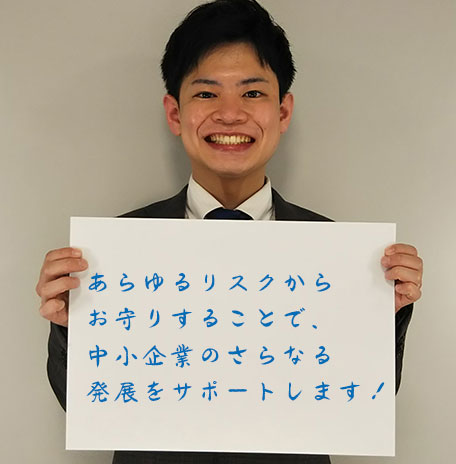 あらゆるリスクから
お守りすることで、
中小企業のさらなる
発展をサポートします！